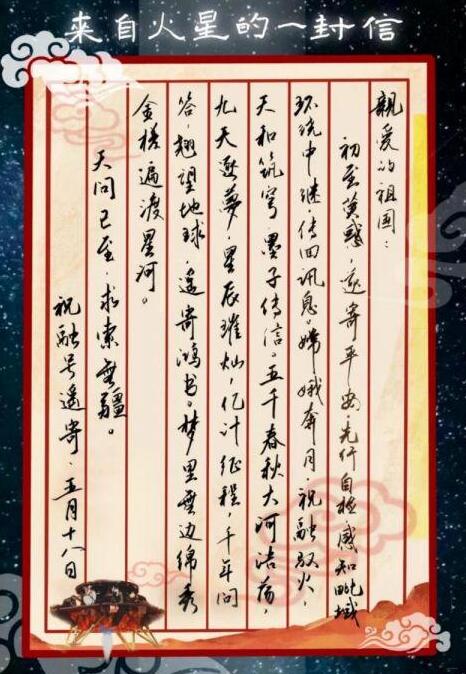 来自火星的一封信
親爱的祖国：
初至荧惑，遥寄平安。先行自检，感知毗域，
环绕中继，传回讯息。嫦娥奔月，祝融驭火，
天和筑穹，墨子传信。五千春秋大河浩荡，
九天逐夢，星辰璀灿，亿计征程，千年问
答，翘望地球，遥寄鸿书。梦里無边绵秀，
金槎遍渡星河。
天问已至，求索無疆。
祝融号遥寄·五月十八日